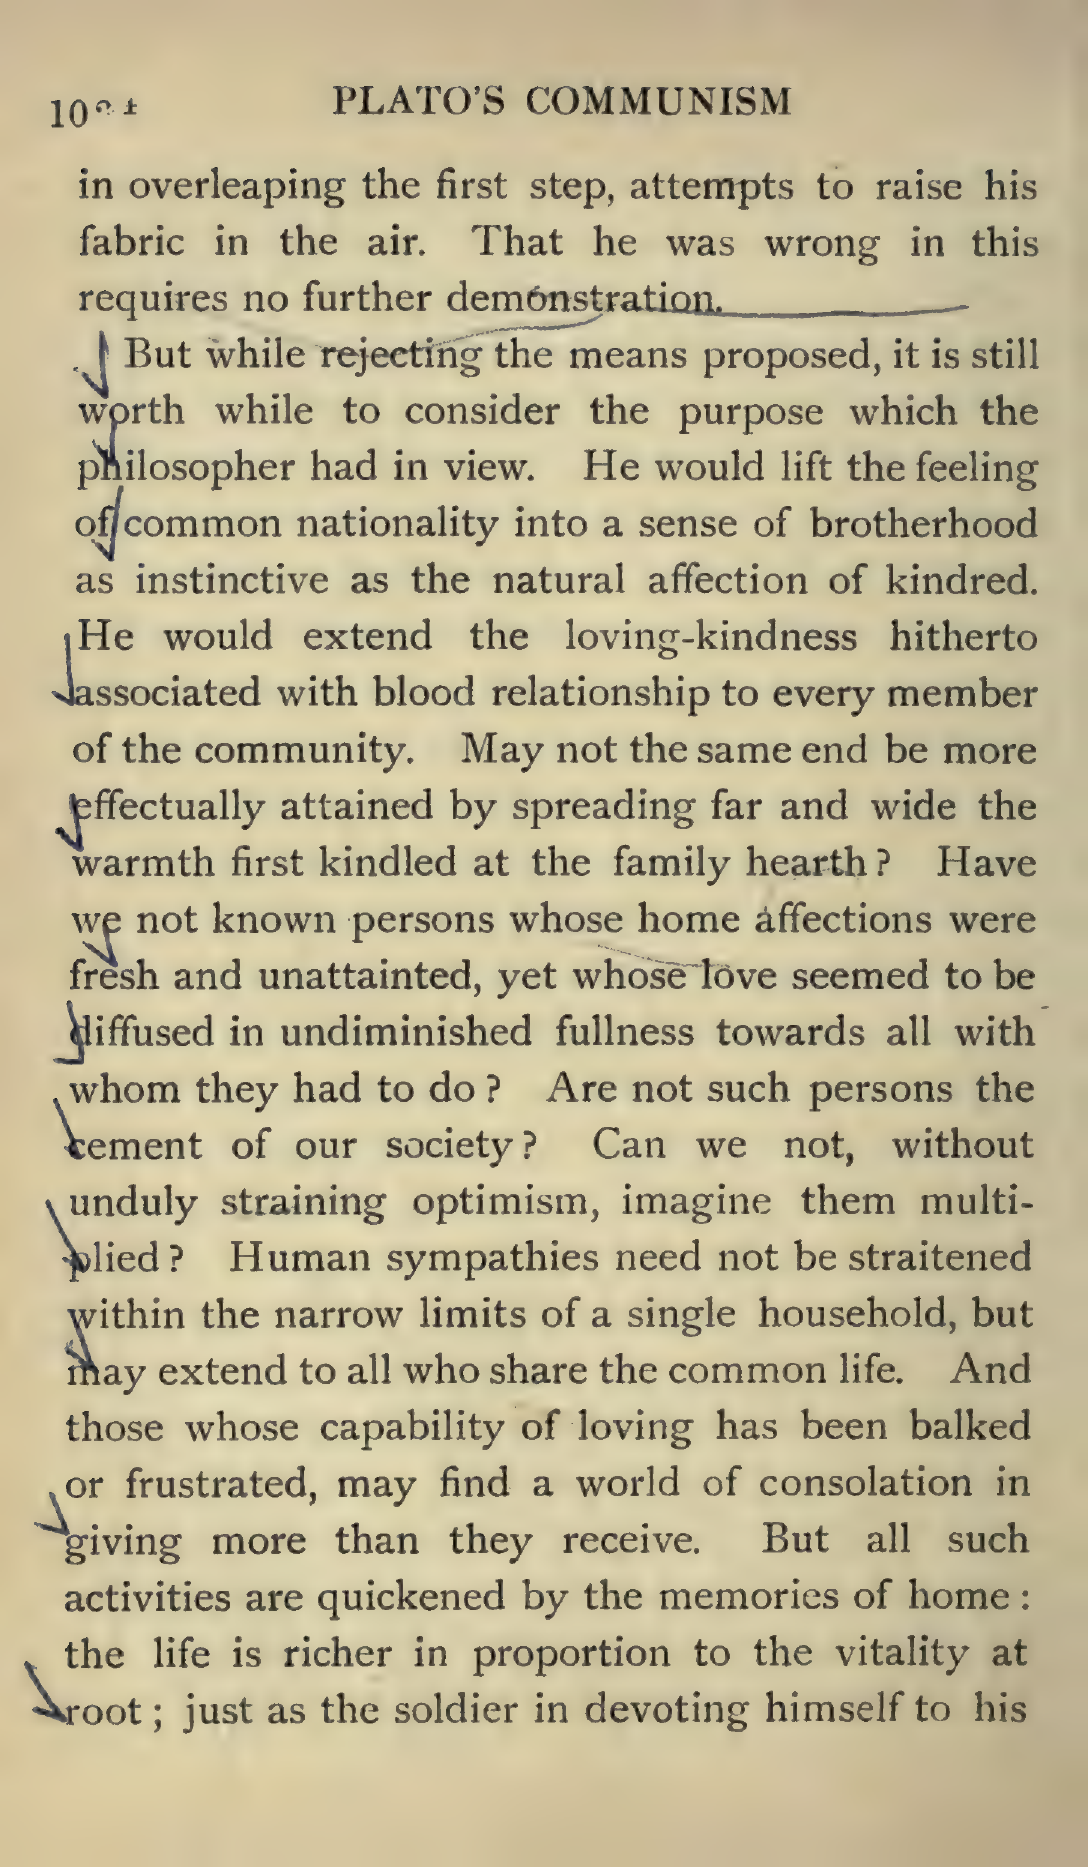 PLATO'S COMMUNISM
in overleaping the first step, attempts to raise his
fabric in the air. That he was wrong in this
requires no further demonstration.
But while rejecting the means proposed, it is still
worth while to consider the purpose which the
philosopher had in view. He would lift the feeling
of common nationality into a sense of brotherhood
as instinctive as the natural affection of kindred.
He would extend the loving-kindness hitherto
associated with blood relationship to every member
of the community. May not the same end be more
effectually attained by spreading far and wide the
warmth first kindled at the family hearth ? Have
we not known persons whose home affections were
fresh and unattainted, yet whose love seemed to be
diffused in undiminished fullness towards all with
whom they had to do ? Are not such persons the
cement of our society ? Can we not, without
unduly straining optimism, imagine them multi-
plied ? Human sympathies need not be straitened
within the narrow limits of a single household, but
may extend to all who share the common life. And
those whose capability of loving has been balked
or frustrated, may find a world of consolation in
giving more than they receive. But all such
activities are quickened by the memories of home :
the life is richer in proportion to the vitality at
root ; just as the soldier in devoting himself to his